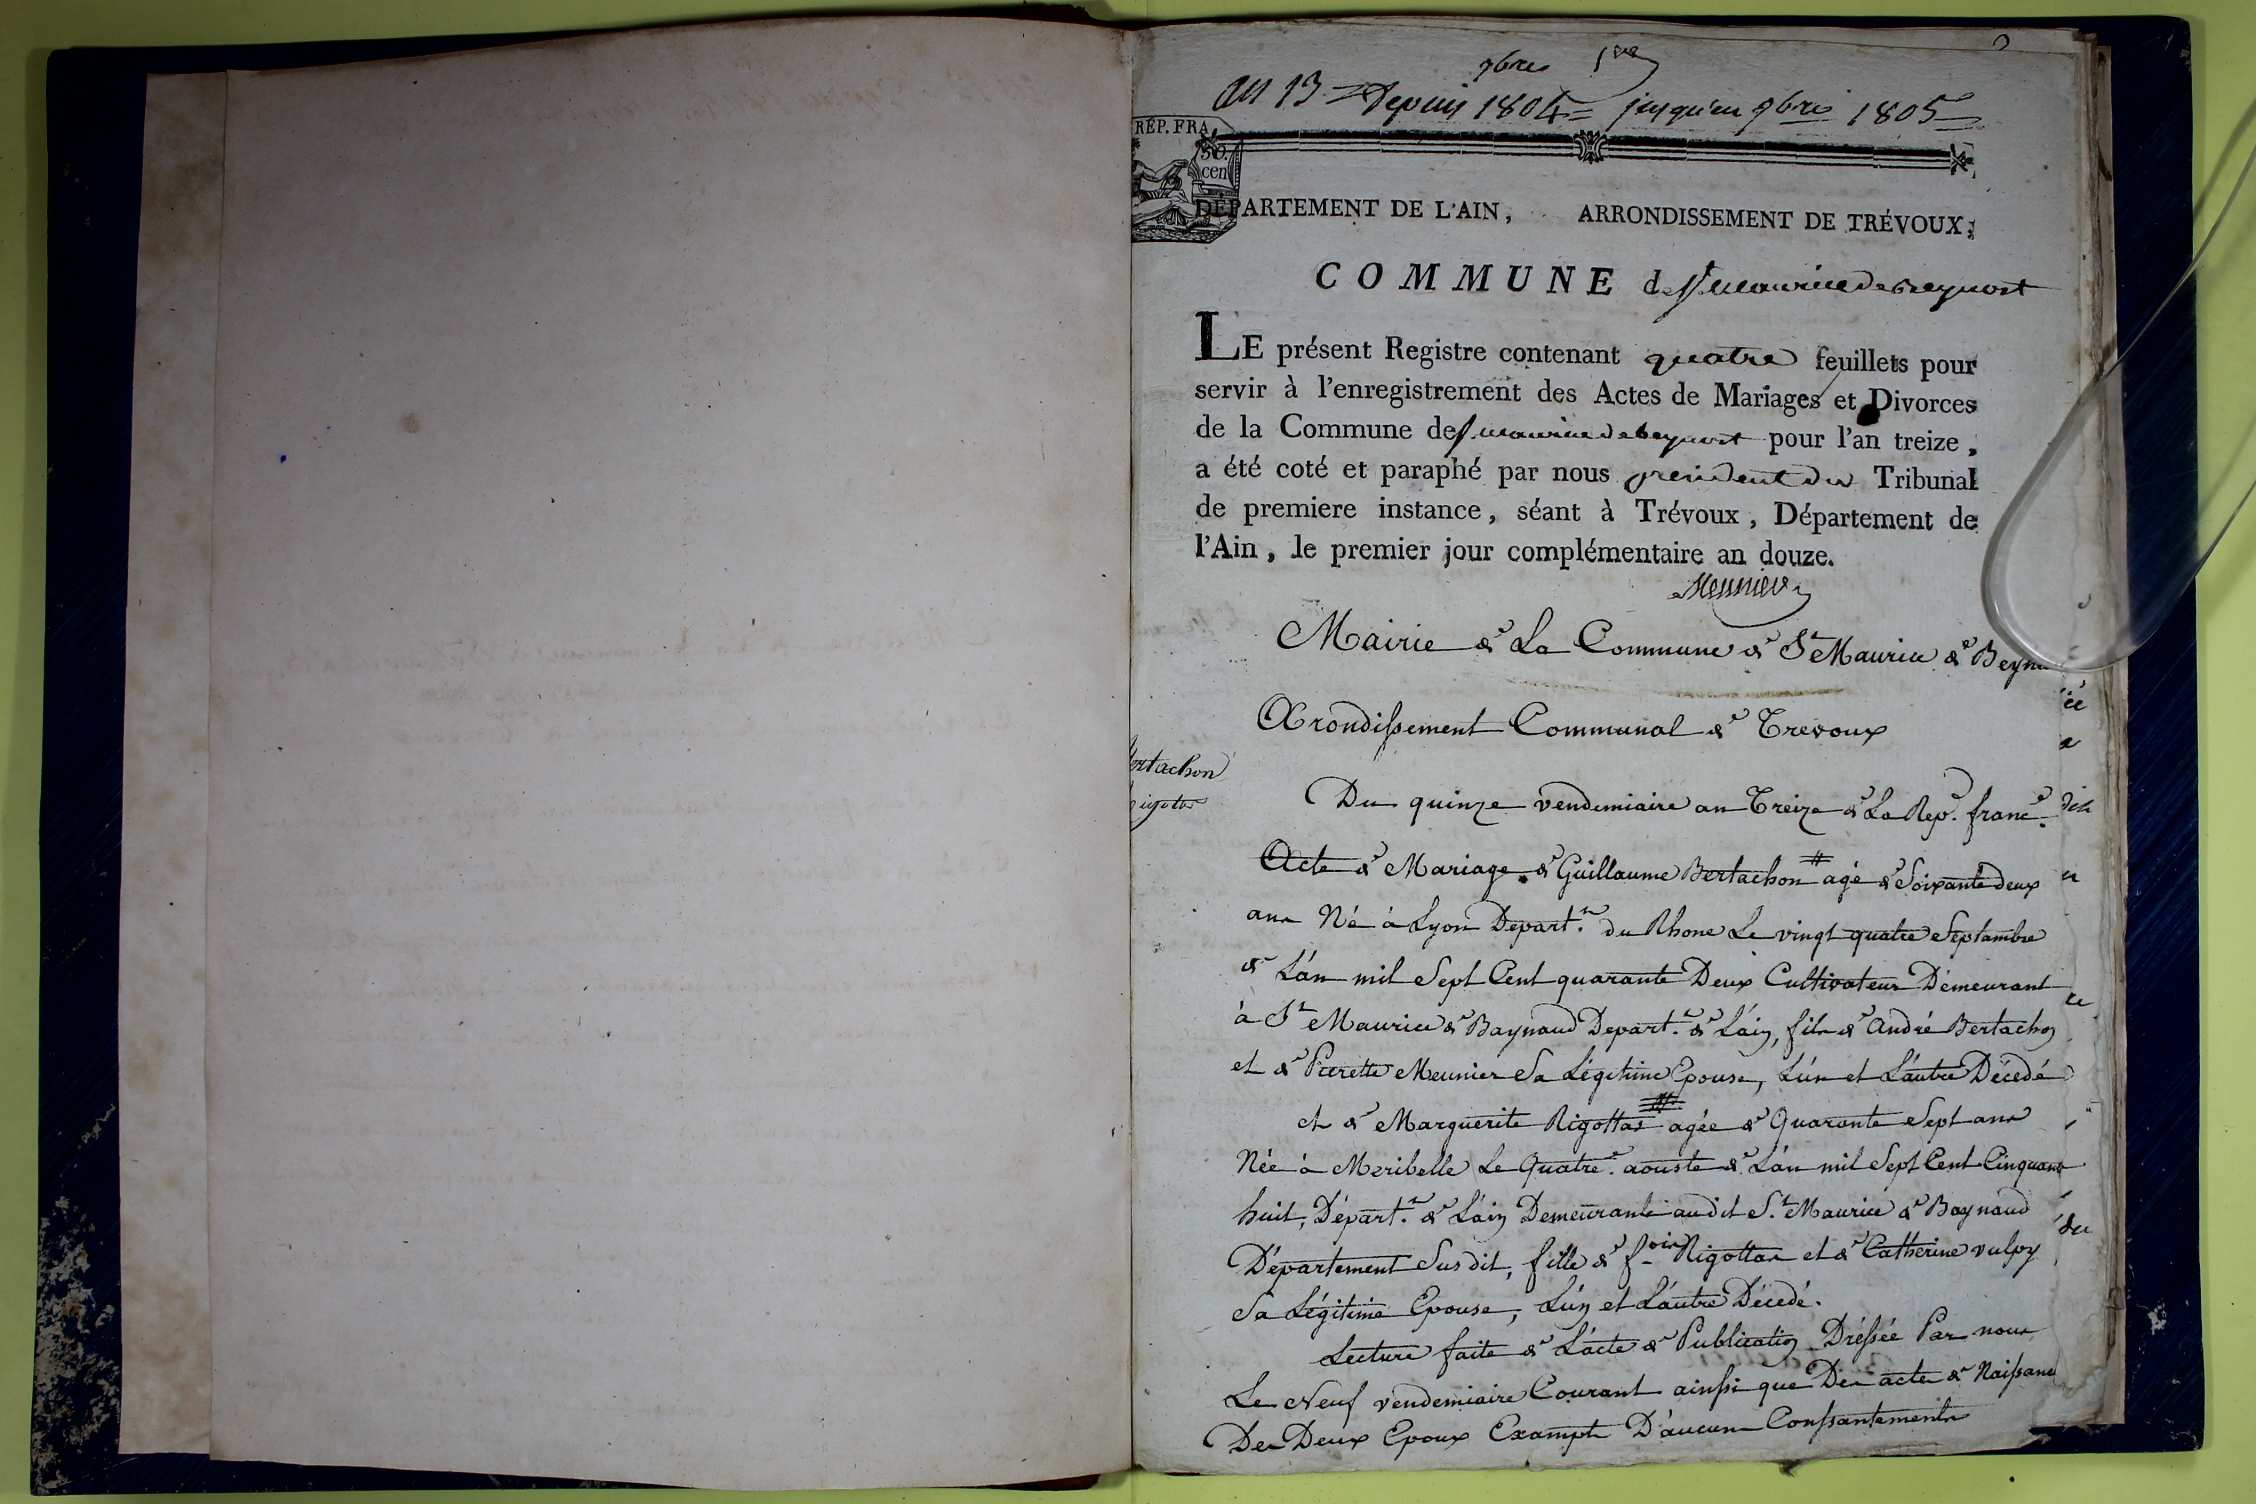 7bre 1er
an 13 = Depuis 1804 = jusqu'en 9bre 1805
RÉP. FRA.
50.
cen
DÉPARTEMENT DE L'AIN, ARRONDISSEMENT DE TRÉVOUX,
COMMUNE de St maurice de beynost
LE présent Registre contenant quatre feuillets pour
servir à l'enregistrement des Actes de Mariages et Divorces
de la Commune de St maurice de beynost pour l'an treize,
a été coté et paraphé par nous president du Tribunal
de premiere instance, séant à Trévoux, Département de
l'Ain, le premier jour complémentaire an douze.
Meunier
Mairie de La Commune de St Maurice de Beyn
Arondissement Communal de Trevoux
ertachon
Du quinze vendemiaire an Treize de La Rep. franc.
Acte de Mariage de Guillaume Bertachon agé de Soixante deux
ans Né à Lyon Depart. du Rhone Le vingt quatre Septambre
de L'án mil Sept Cent quarante Deux Cultivateur Démeurant
à St Maurice de Baynaud Depart. de L'áin, fils de André Bertachon
et de Pierrette Meunier Sa Légitime Epouse, L'ún et L'áutre Décedé
et de Marguerite Rigottas agée de Quarante Sept ans
Née à Meribelle Le Quatre aouste de L'án mil Sept Cent Cinquante
huit, Départ. de L'áin Demeurante audit St Maurice de Baynaud
Département Sus dit, fille de fois Rigottas et de Catherine vulpy
Sa Légitime Epouse, L'ún et L'áutre Décedé.
Lecture faite de L'ácte de Publication Dréssée Par nous
Le Neuf vendemiaire Courant ainssi que Des acte de Naissance
Des Deux Epoux Exampts D'áucuns Conssantements